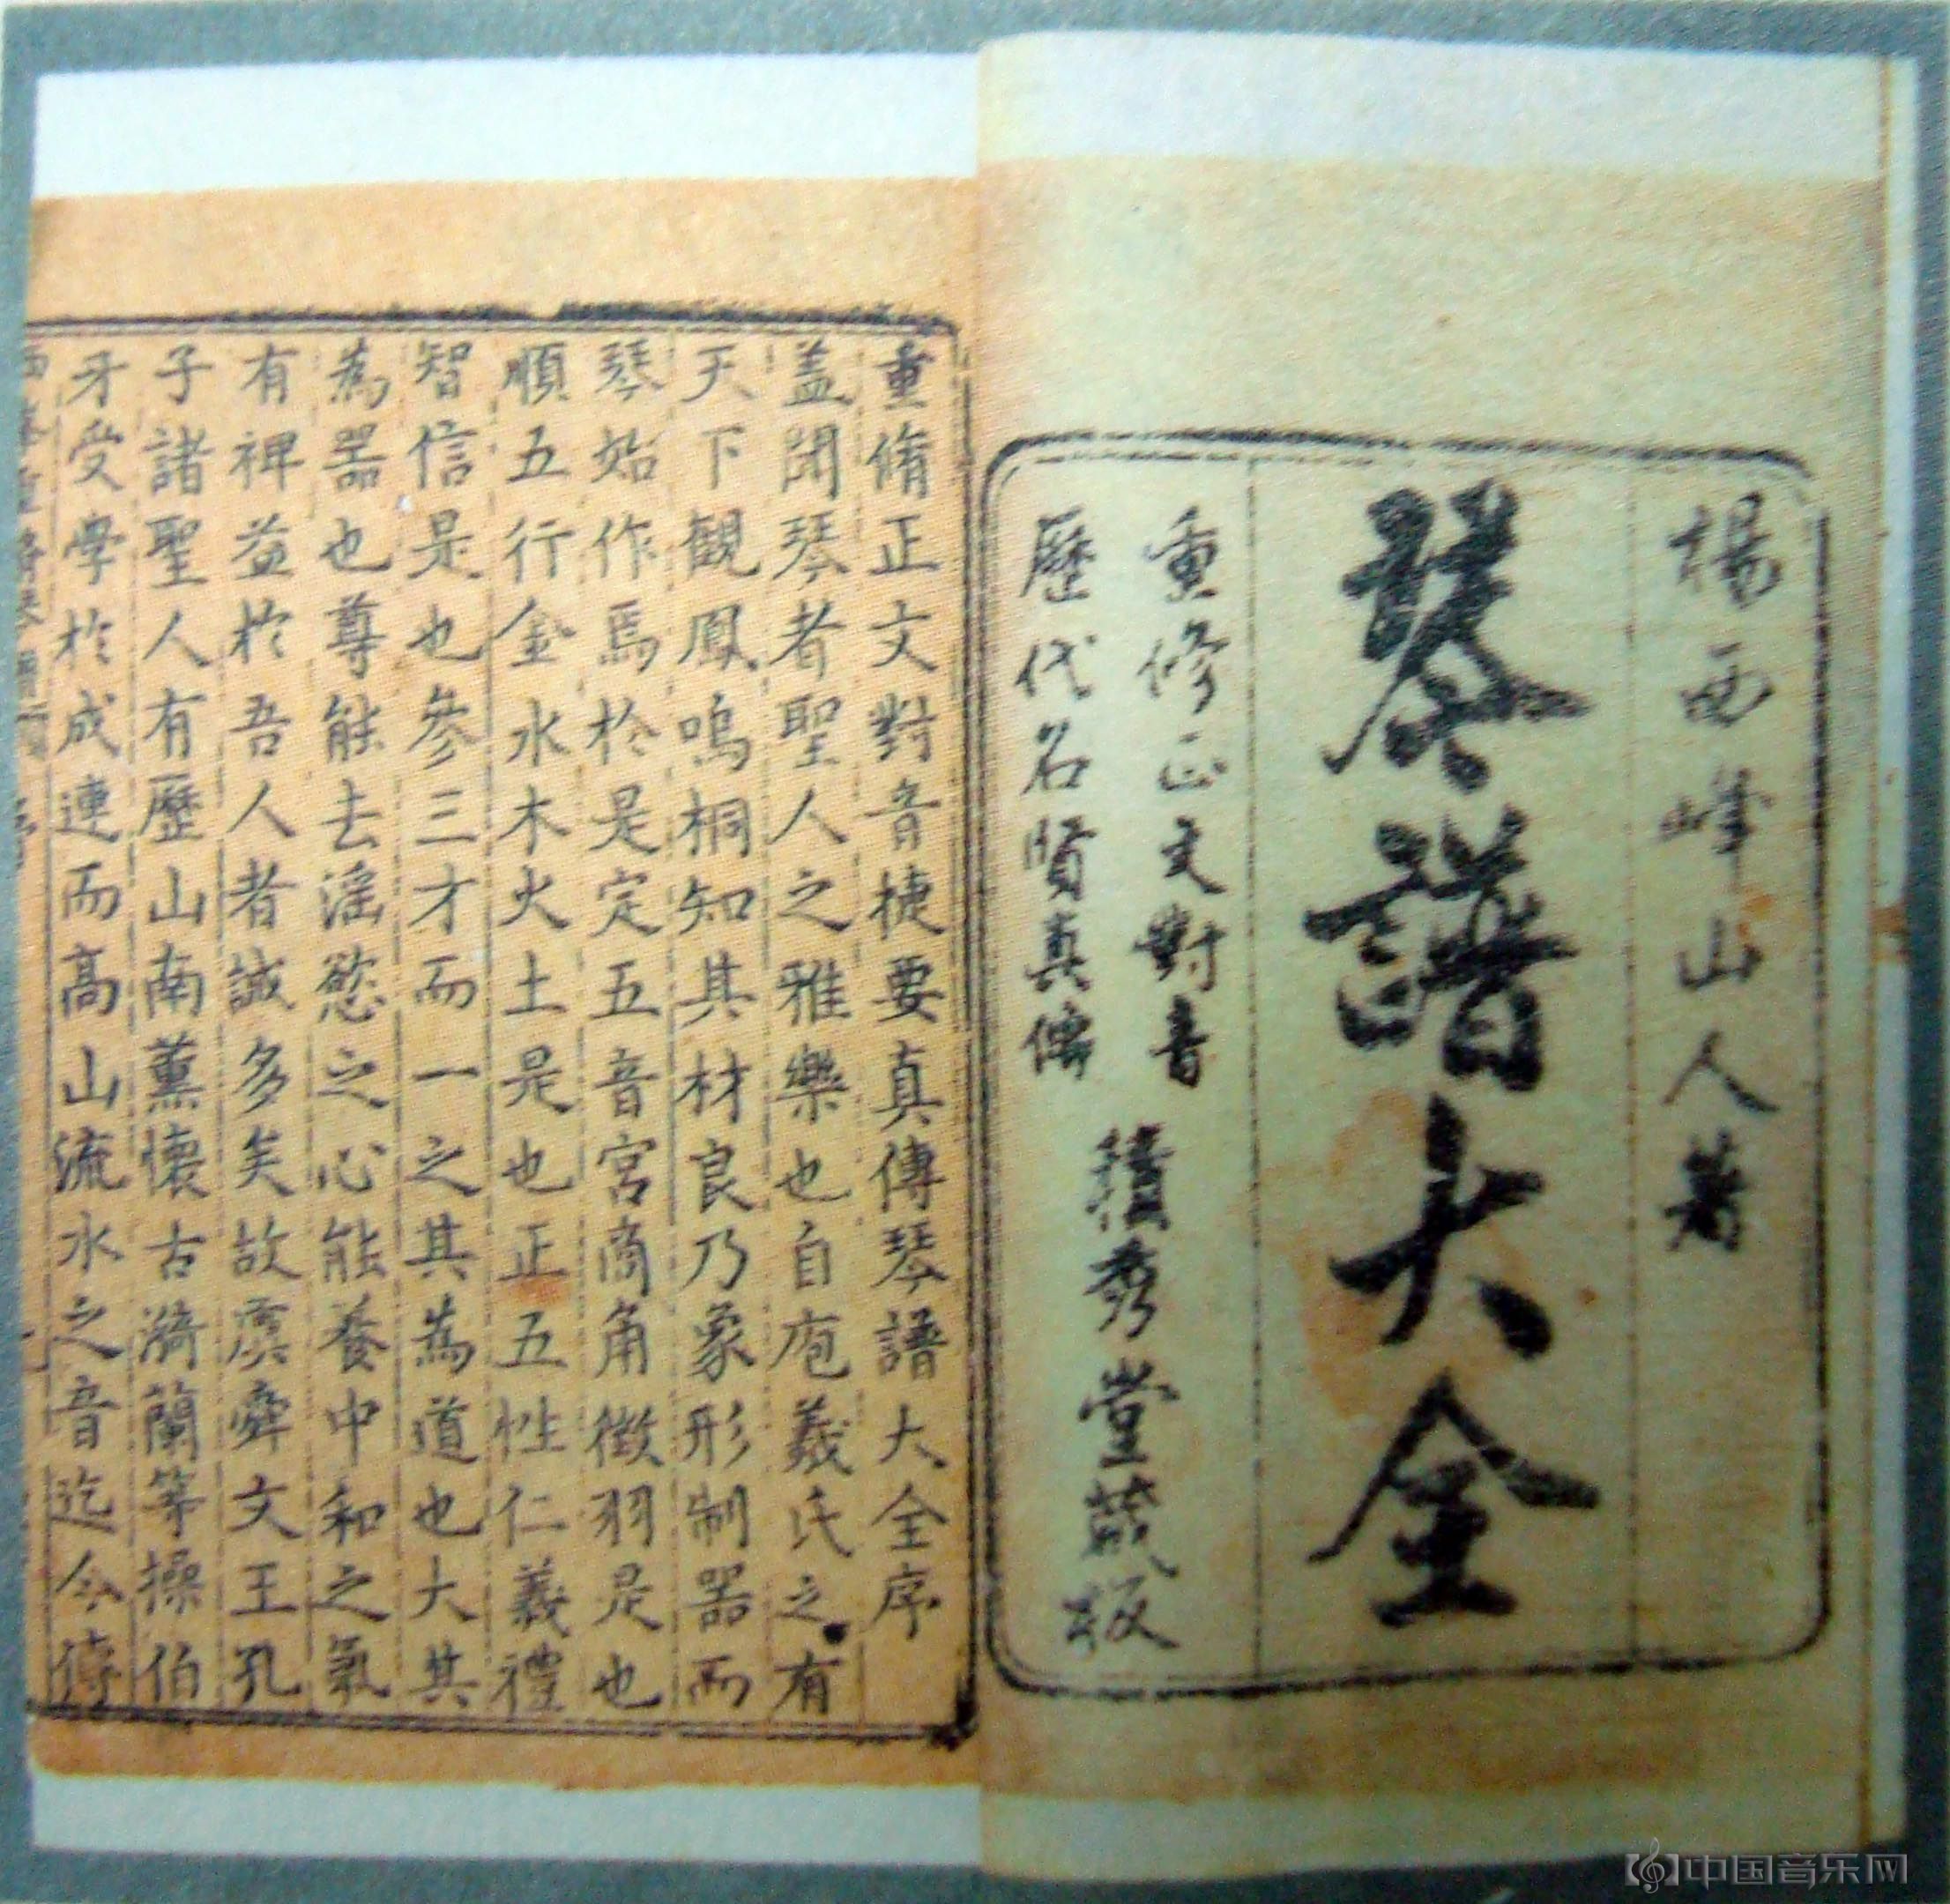 楊西峰山人著
琴譜大全
重修正文對音
歷代名賢真傳
積秀堂藏板
重脩正文對音捷要真傳琴譜大全序
盖聞琴者聖人之雅樂也自庖羲氏之有
天下觀鳳鳴桐知其材良乃象形制器而
琴始作焉於是定五音宮商角徵羽是也
順五行金水木火土是也正五性仁義禮
智信是也參三才而一之其為道也大其
為器也尊能去淫慾之心能養中和之氣
有裨益於吾人者誠多矣故虞舜文王孔
子諸聖人有歷山南薰懷古漪蘭等操伯
牙受學於成連而高山流水之音迄今傳
中国音乐网